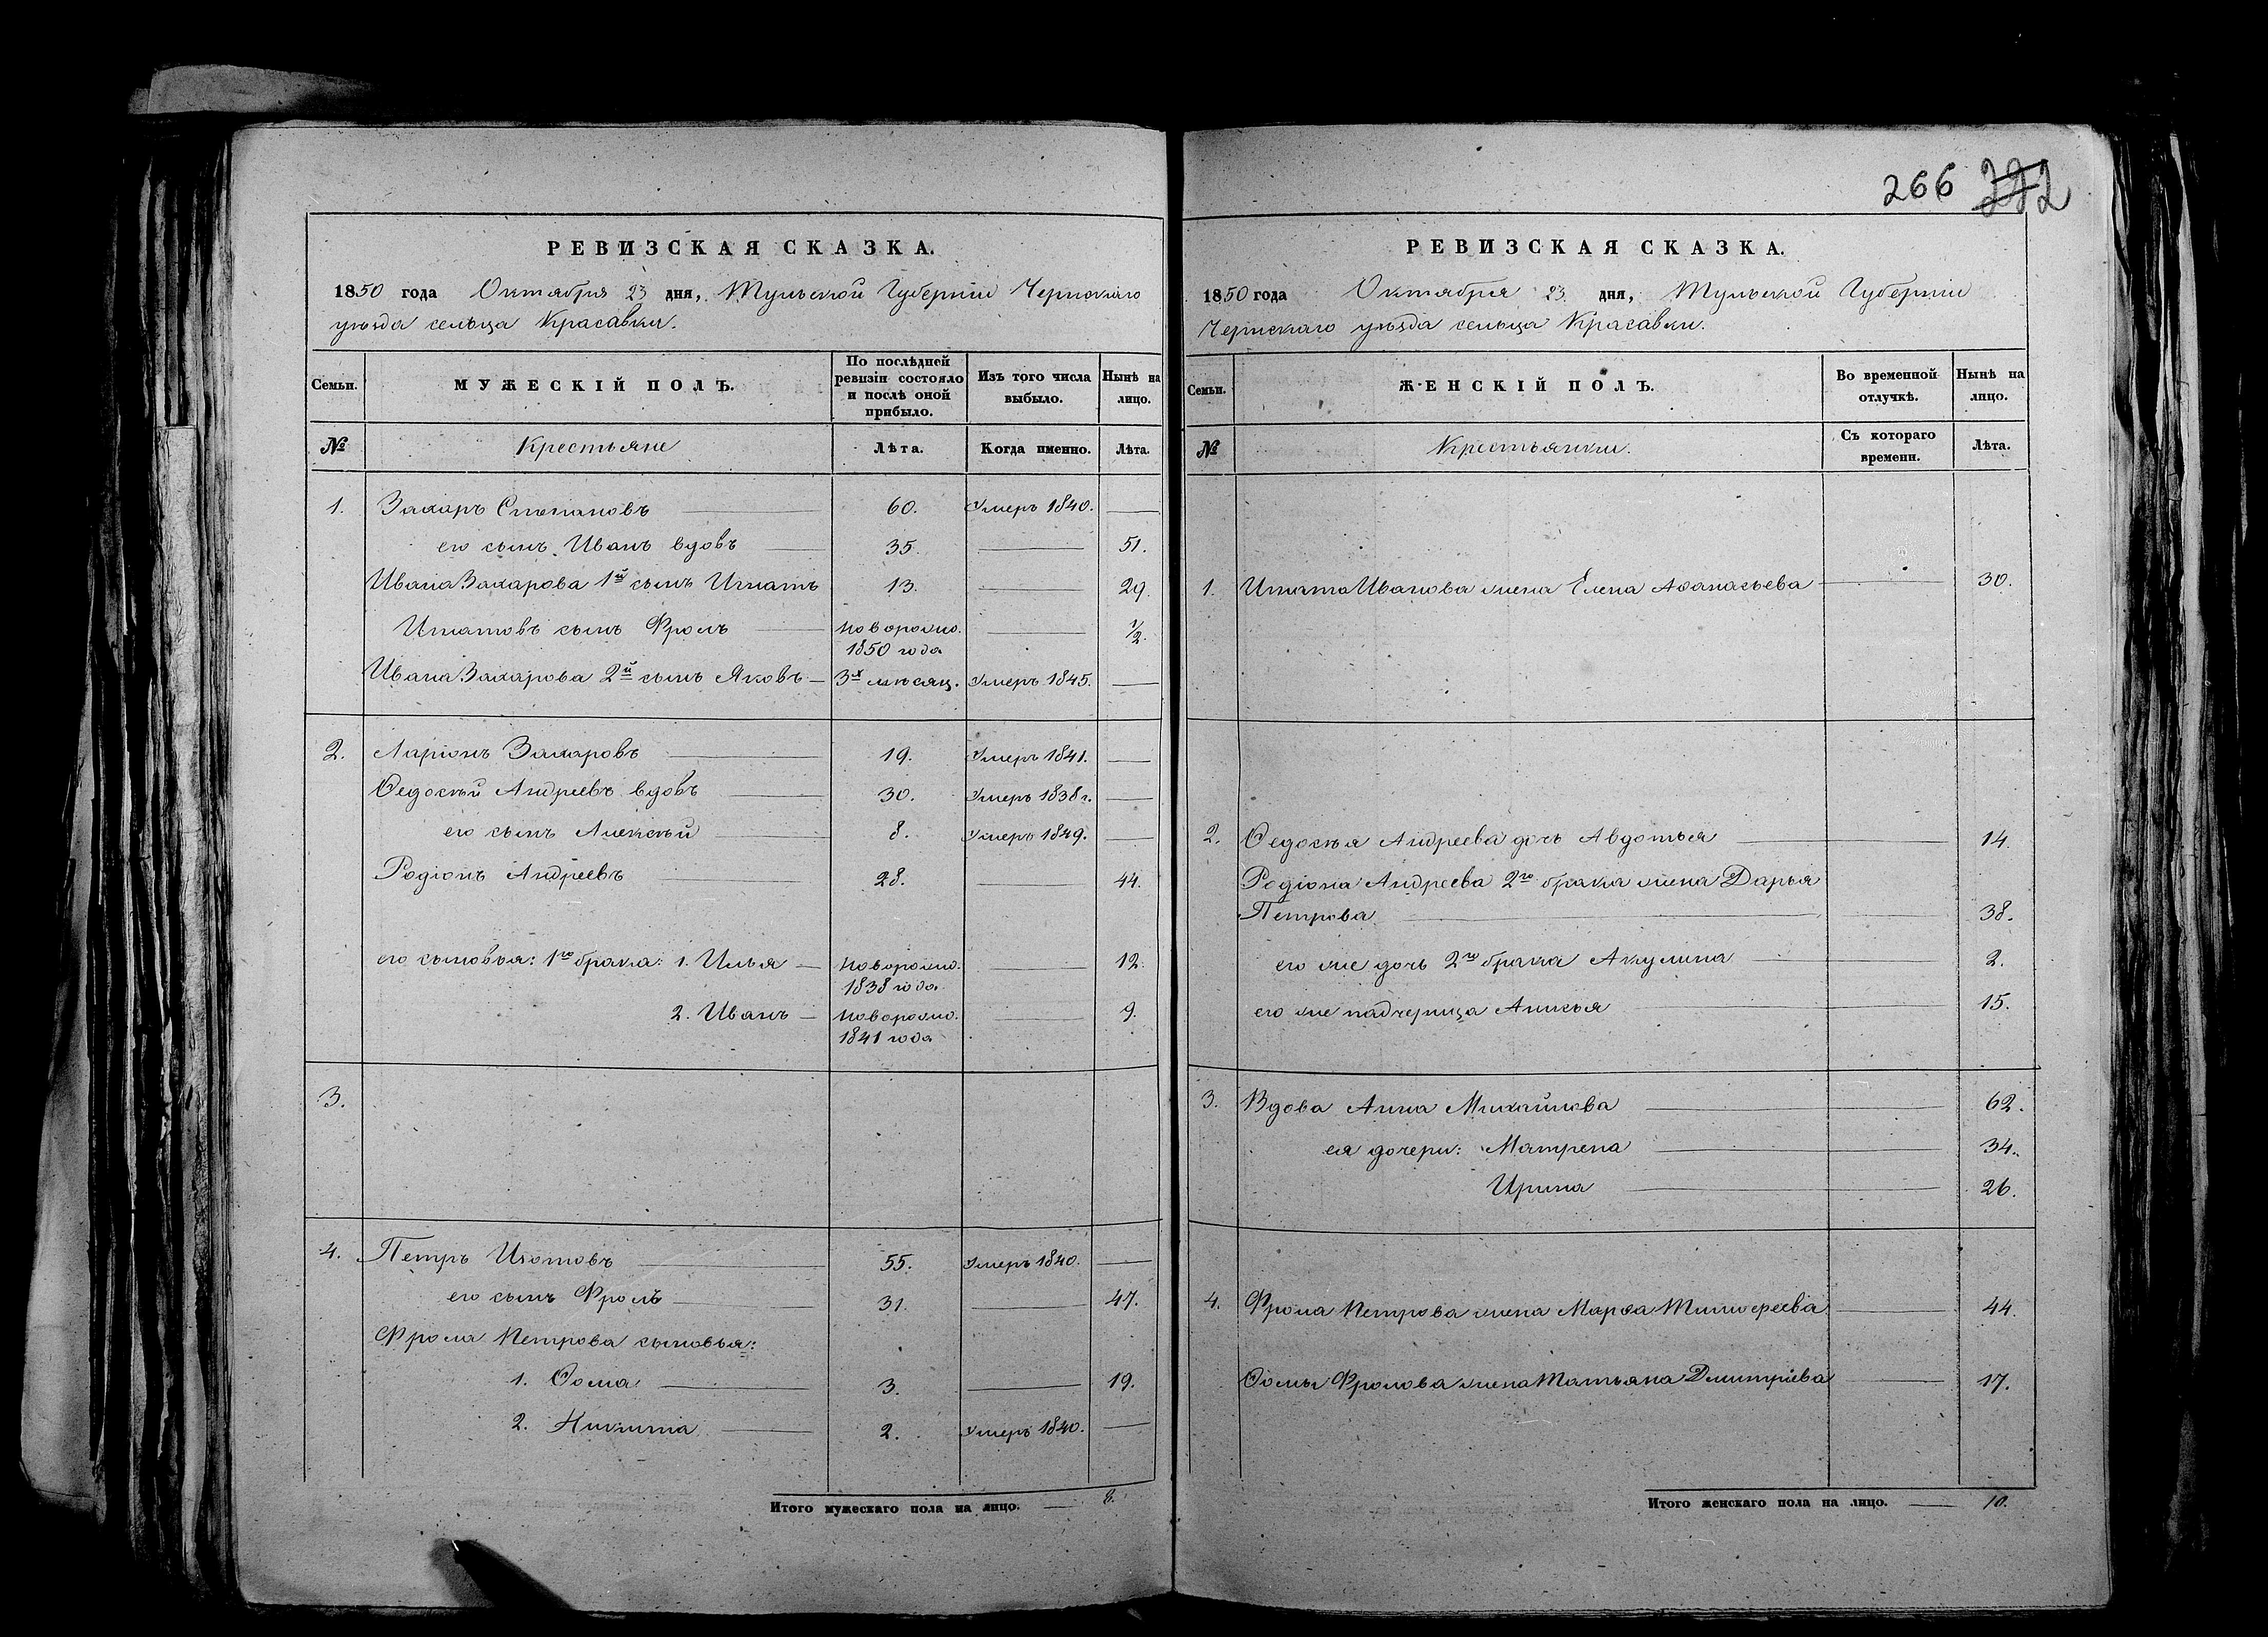 РЕВИЗСКАЯ СКАЗКА.
1850 года Октября 23 дня, Тульской Губерніи Чернскаго
уѣзда сельца Красавки.
Семьи. МУЖЕСКІЙ ПОЛЪ. По послѣдней ревизіи состояло и послѣ оной прибыло. Изъ того числа выбыло. Нынѣ на лицо.
№ Крестьяне Лѣта. Когда именно. Лѣта.
1. Захаръ Степановъ 60. Умеръ 1840. —
его сынъ Иванъ вдовъ 35. — 51.
Ивана Захарова 1й сынъ Игнатъ 13. — 29.
Игнатовъ сынъ Фролъ новорожд. — ½.
1850 года
Ивана Захарова 2й сынъ Яковъ — 3х мѣсяц. Умеръ 1845. —
2. Ларіонъ Захаровъ 19. Умеръ 1841. —
Ѳедосѣй Андреевъ вдовъ 30. Умеръ 1838 г. —
его сынъ Алексѣй 8. Умеръ 1849. —
Родіонъ Андреевъ 28. — 44.
его сыновья: 1го брака: 1. Илья — новорожд. — 12.
1838 года.
2. Иванъ — новорожд. — 9.
1841 года
3.
4. Петръ Изотовъ 55. Умеръ 1840. —
его сынъ Фролъ 31. — 47.
Фрола Петрова сыновья:
1. Ѳома 3. — 19.
2. Никита 2. Умеръ 1840. —
Итого мужескаго пола на лицо. — 8.
266 272
РЕВИЗСКАЯ СКАЗКА.
1850 года Октября 23 дня, Тульской Губерніи
Чернскаго уѣзда сельца Красавки.
Семьи. ЖЕНСКІЙ ПОЛЪ. Во временной отлучкѣ. Нынѣ на лицо.
№ Крестьянки. Съ котораго времени. Лѣта.
1. Игната Иванова жена Елена Аѳанасьева — 30.
2. Ѳедосѣя Андреева дочь Авдотья — 14.
Родіона Андреева 2го брака жена Дарья
Петрова — 38.
его же дочь 2го брака Акулина — 2.
его же падчерица Анисья — 15.
3. Вдова Анна Михайлова — 62.
ея дочери: Матрена — 34.
Ирина — 26.
4. Фрола Петрова жена Марѳа Тимофеева — 44.
Ѳомы Фролова жена Татьяна Дмитріева — 17.
Итого женскаго пола на лицо. — 10.